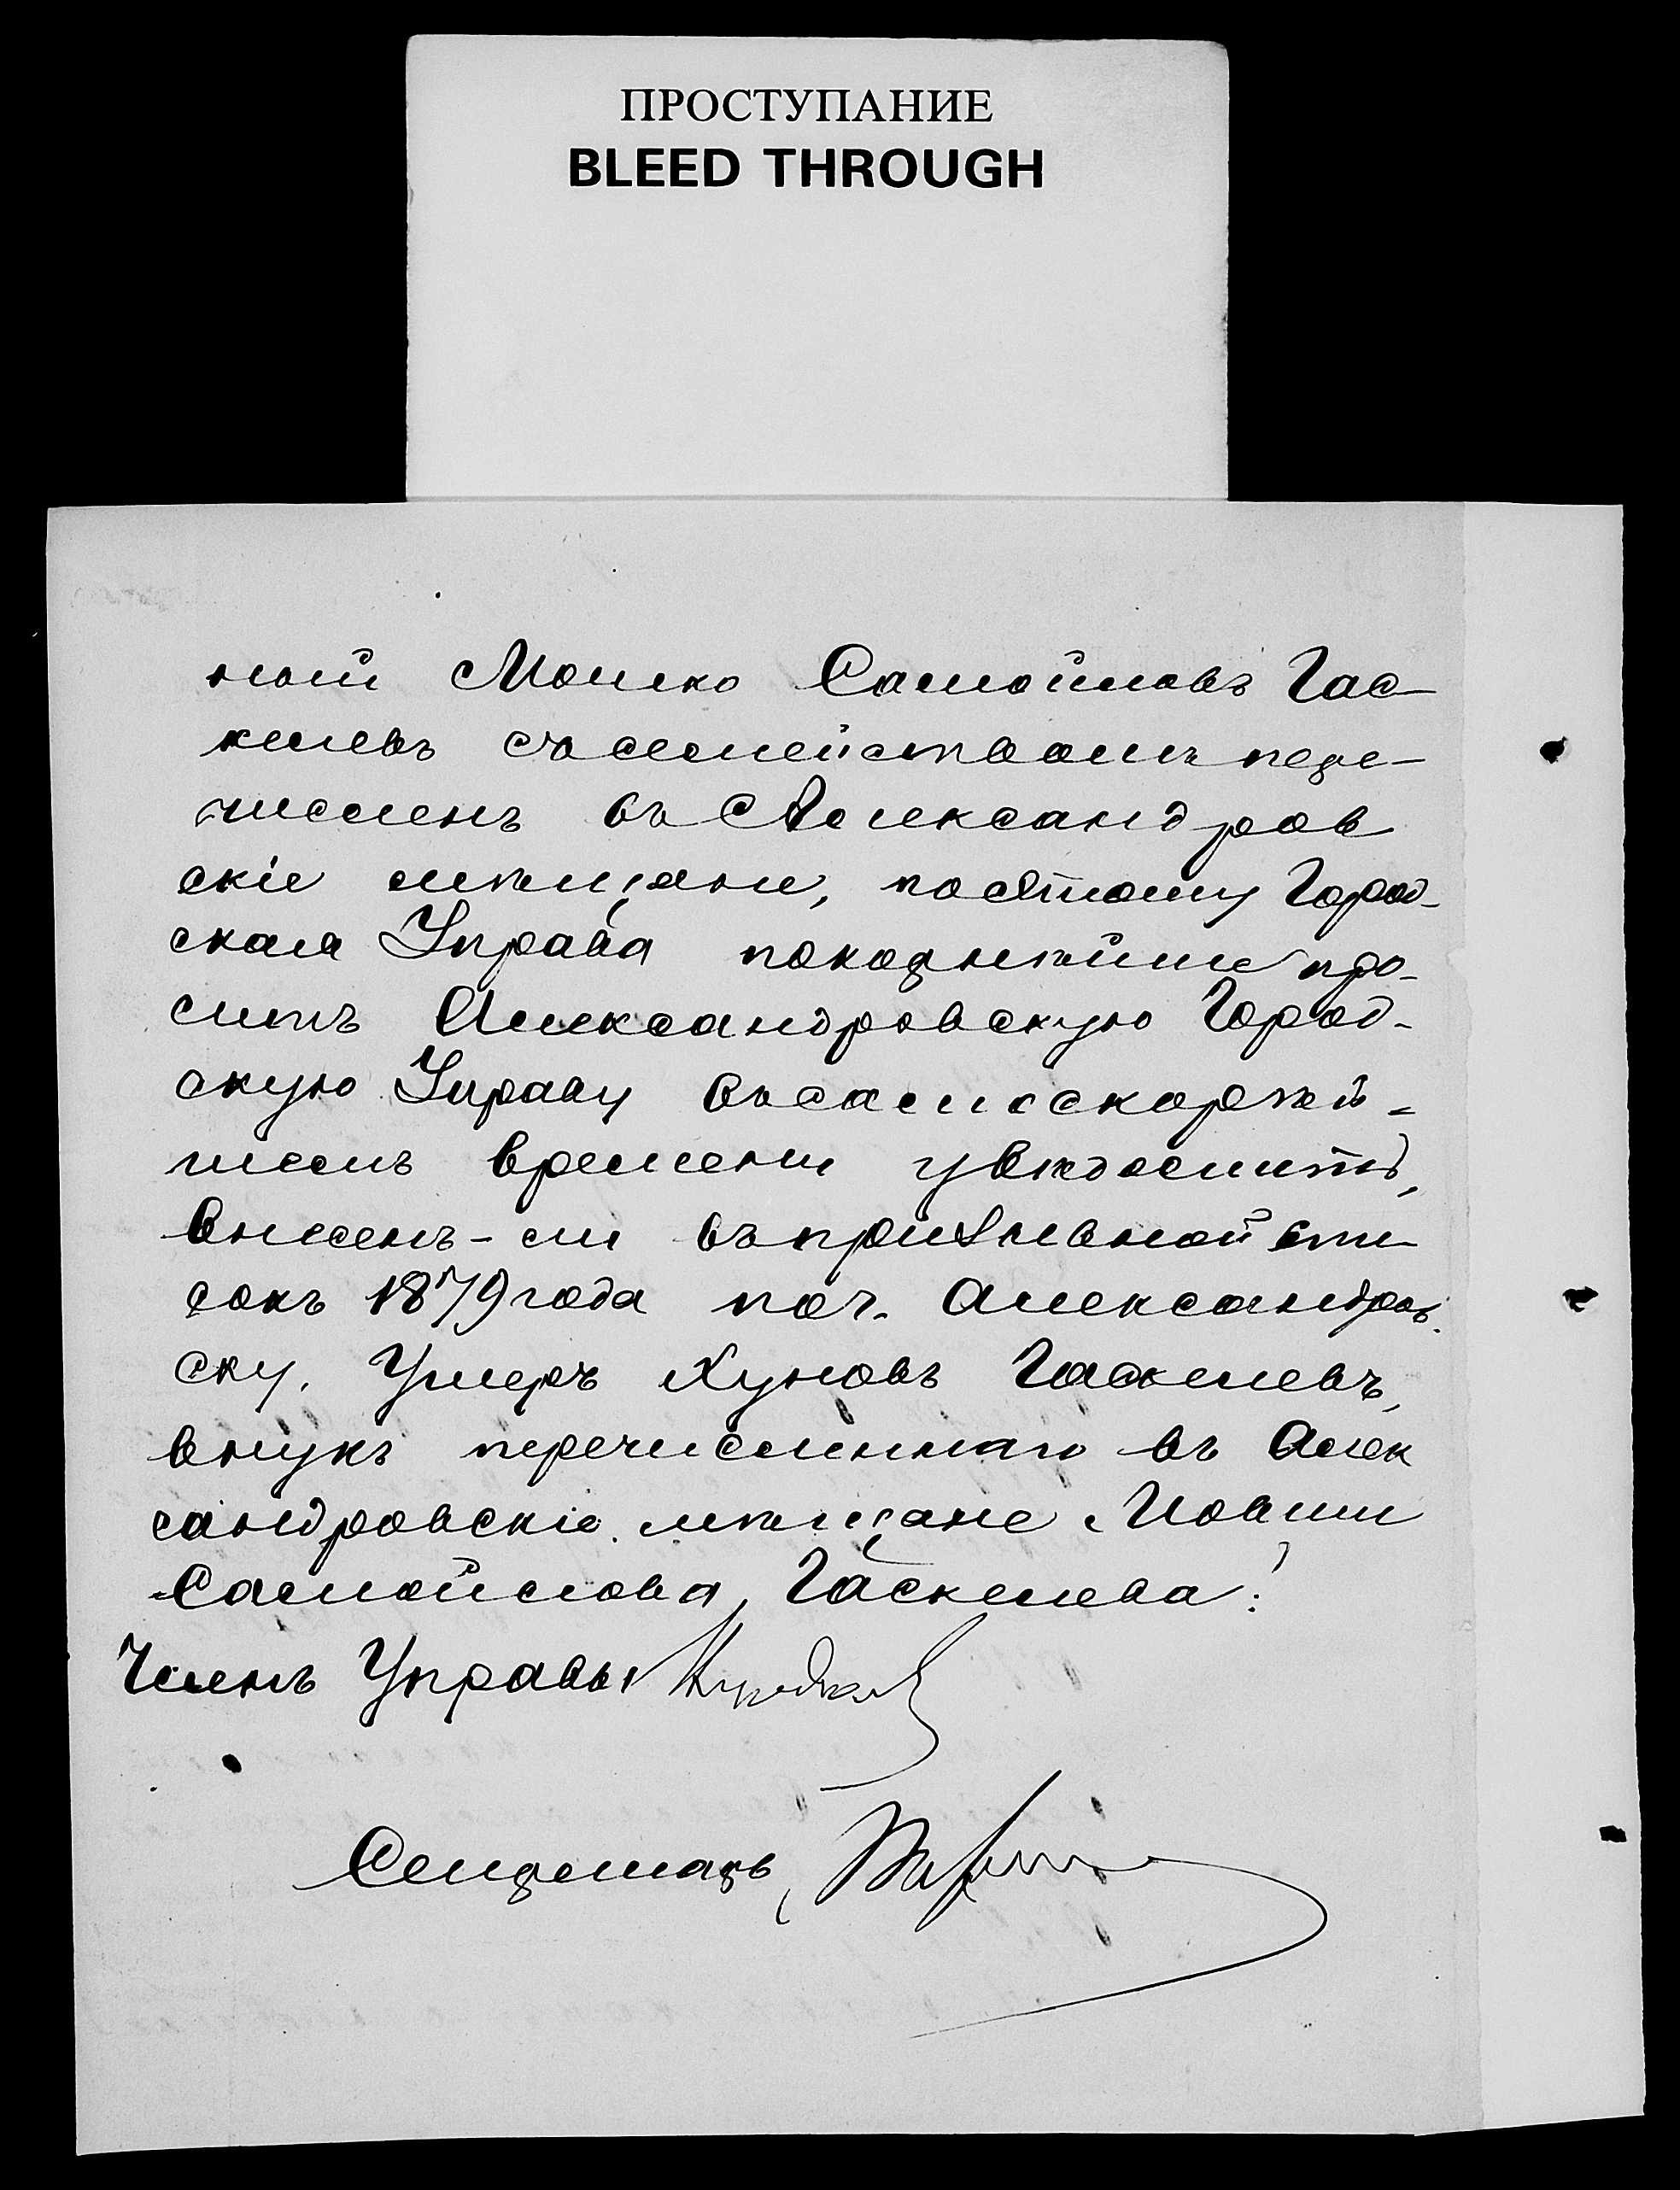 ПРОСТУПАНИЕ
BLEED THROUGH
ной Мошко Самойловъ Гас-
келевъ съ семействомъ пере-
численъ въ Александров
скіе мѣщане, поэтому Город-
ская Управа покорнѣйше про-
ситъ Александровскую Город-
скую Управу въ самоскорѣй-
шемъ времени увѣдомить,
внесенъ-ли въ призывной спи
сокъ 1879 года по г. Александров.
ску, Умеръ Хуновъ Гаскелевъ,
внукъ перечисленнаго въ Алек
сандровскіе мѣщане Мовши
Самойлова Гаскелева?
Членъ Управы
Секретарь